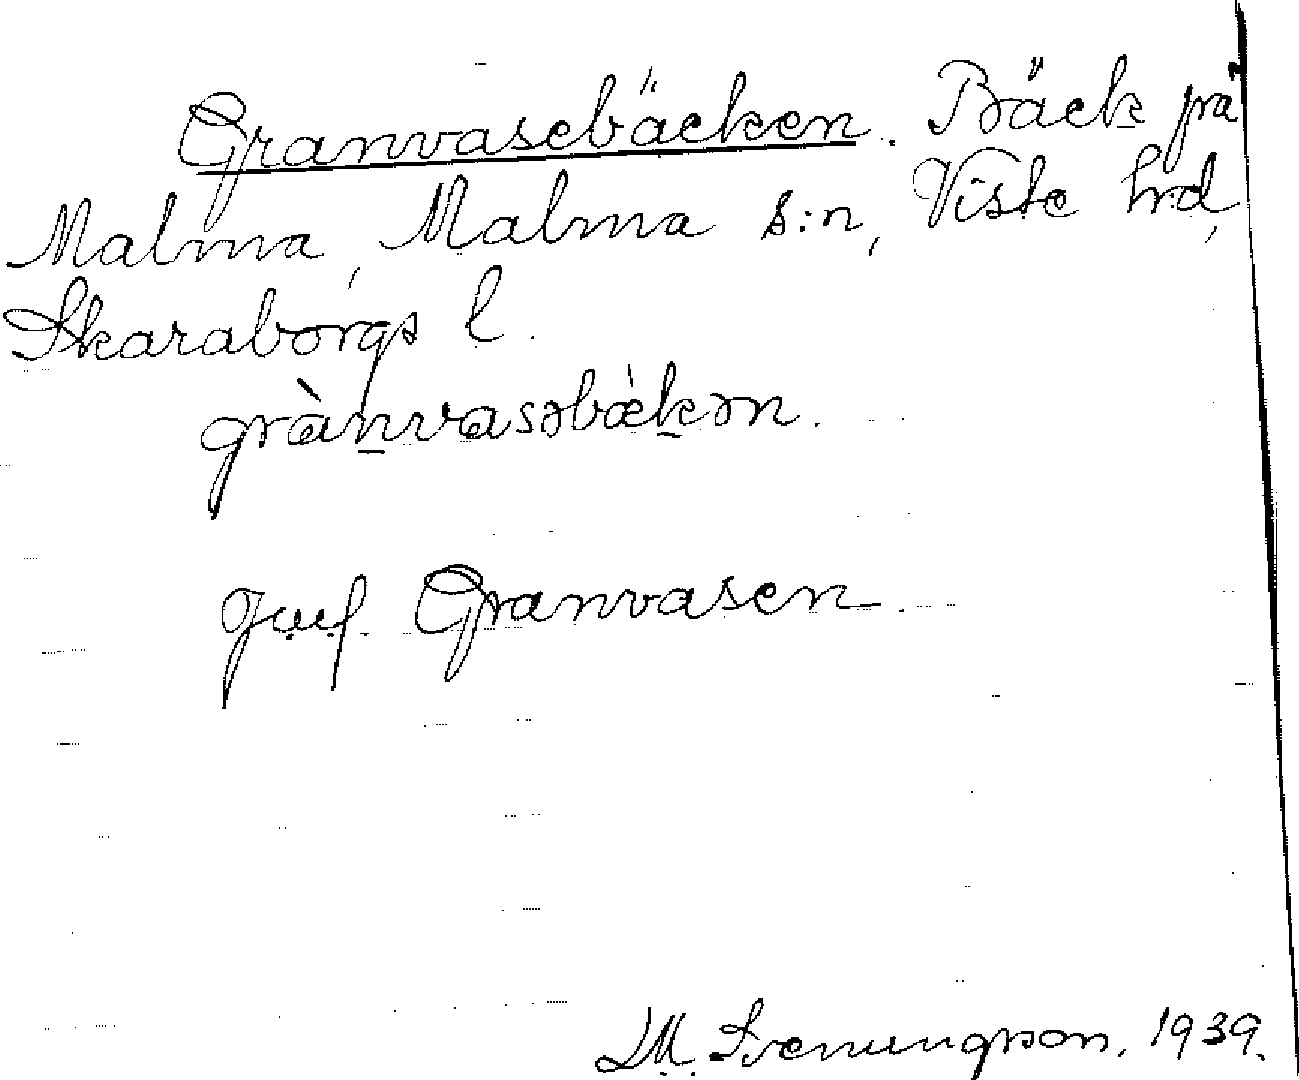 Granvasebäcken. Bäck på
Malma, Malma s:n, Viste hrd,
Skaraborgs l.
grànvasəbækən.
Jmf. Granvasen.
M. Svenungsson, 1939.